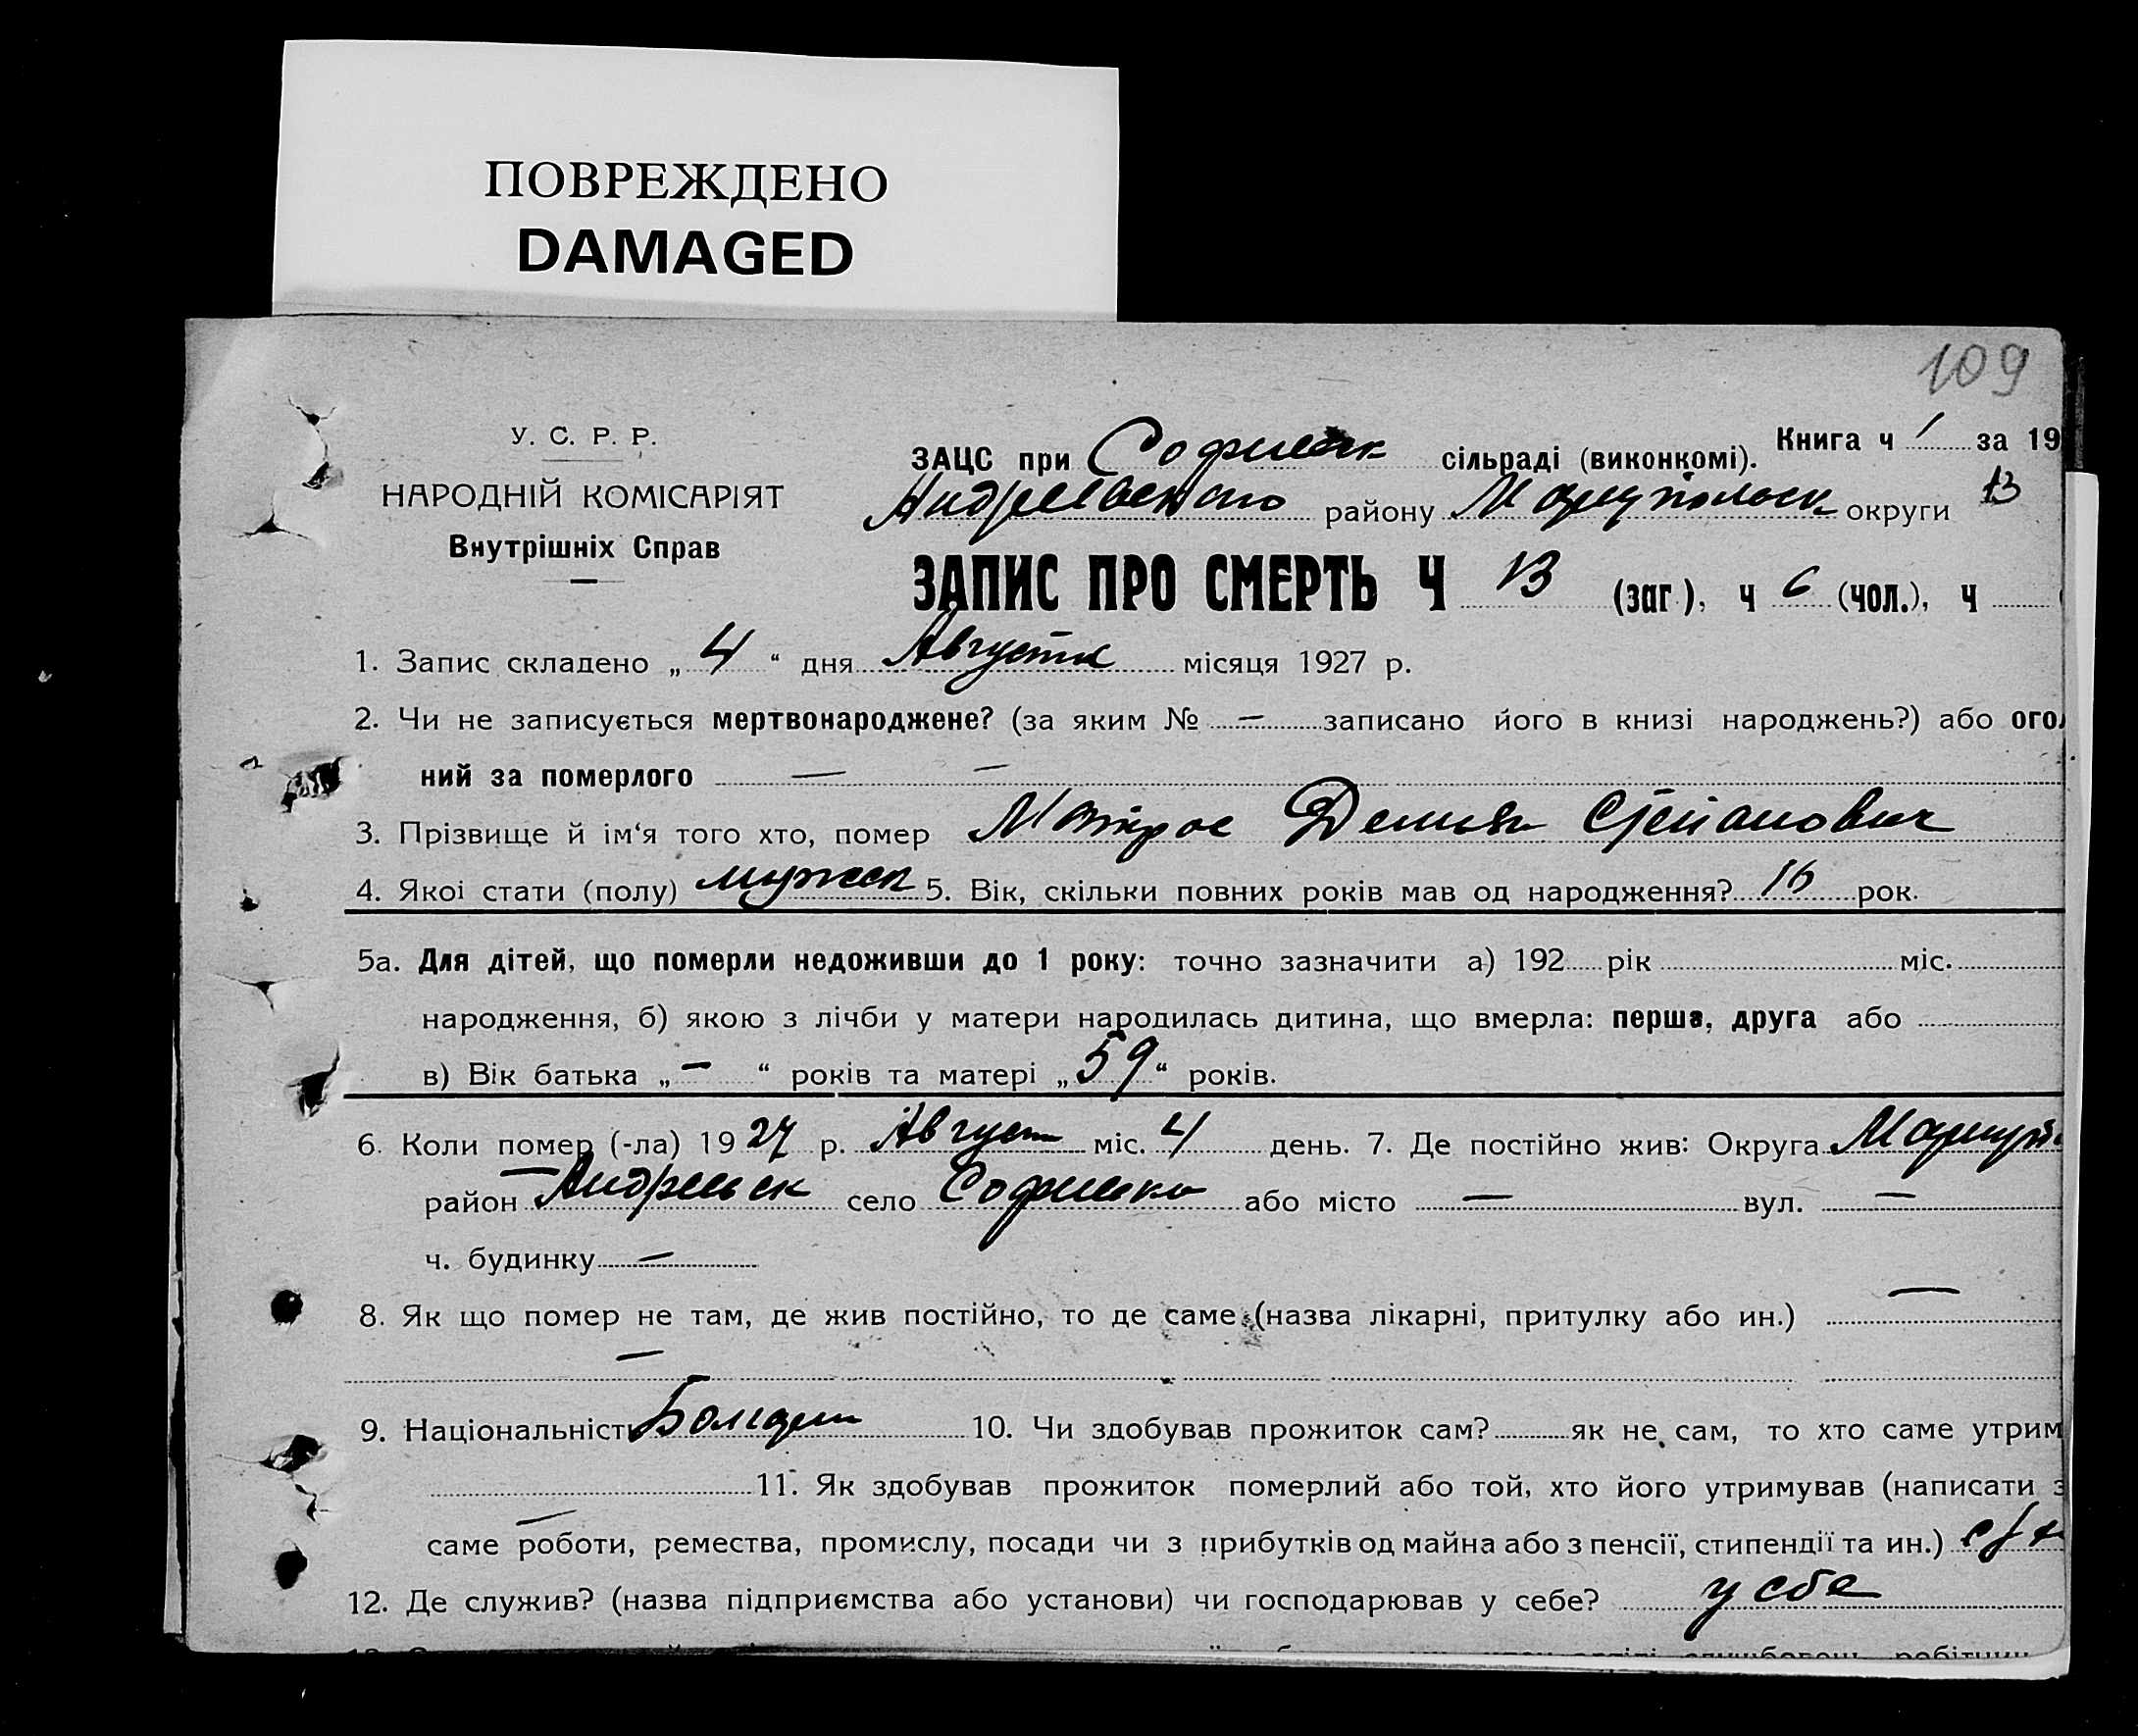 ПОВРЕЖДЕНО
DAMAGED
109
У. С. Р. Р.
НАРОДНІЙ КОМІСАРІЯТ
Внутрішніх Справ
Книга ч 1 за 19
ЗАЦС при Софиевк сільраді (виконкомі).
Андреевского району Мариупольск округи 13
ЗАПИС ПРО СМЕРТЬ Ч 13 (заг.), ч 6 (чол.), ч
1. Запис складено „ 4 “ дня Августа місяця 1927 р.
2. Чи не записується мертвонароджене? (за яким № — записано його в книзі народжень?) або ого
ний за померлого — —
3. Прізвище й ім‘я того хто, помер Матрос Демьян Степанович
4. Якоі стати (полу) мужеск 5. Вік, скільки повних років мав од народження? 16 рок.
5а. Для дітей, що померли недоживши до 1 року: точно зазначити а) 192 рік міс.
народження, б) якою з лічби у матери народилась дитина, що вмерла: перша, друга або
в) Вік батька „ — “ років та матері „ 59 “ років.
6. Коли помер (-ла) 1927 р. Август міс. 4 день. 7. Де постійно жив: Округа Мариуп
район Андреевск село Софиевка або місто — вул. —
ч. будинку —
8. Як що помер не там, де жив постійно, то де саме (назва лікарні, притулку або ин.) —
—
9. Національність Болгарин 10. Чи здобував прожиток сам? як не сам, то хто саме утрим
11. Як здобував прожиток померлий або той, хто його утримував (написати з
саме роботи, ремества, промислу, посади чи з прибутків од майна або з пенсії, стипендії та ин.)
12. Де служив? (назва підприємства або установи) чи господарював у себе? у себе